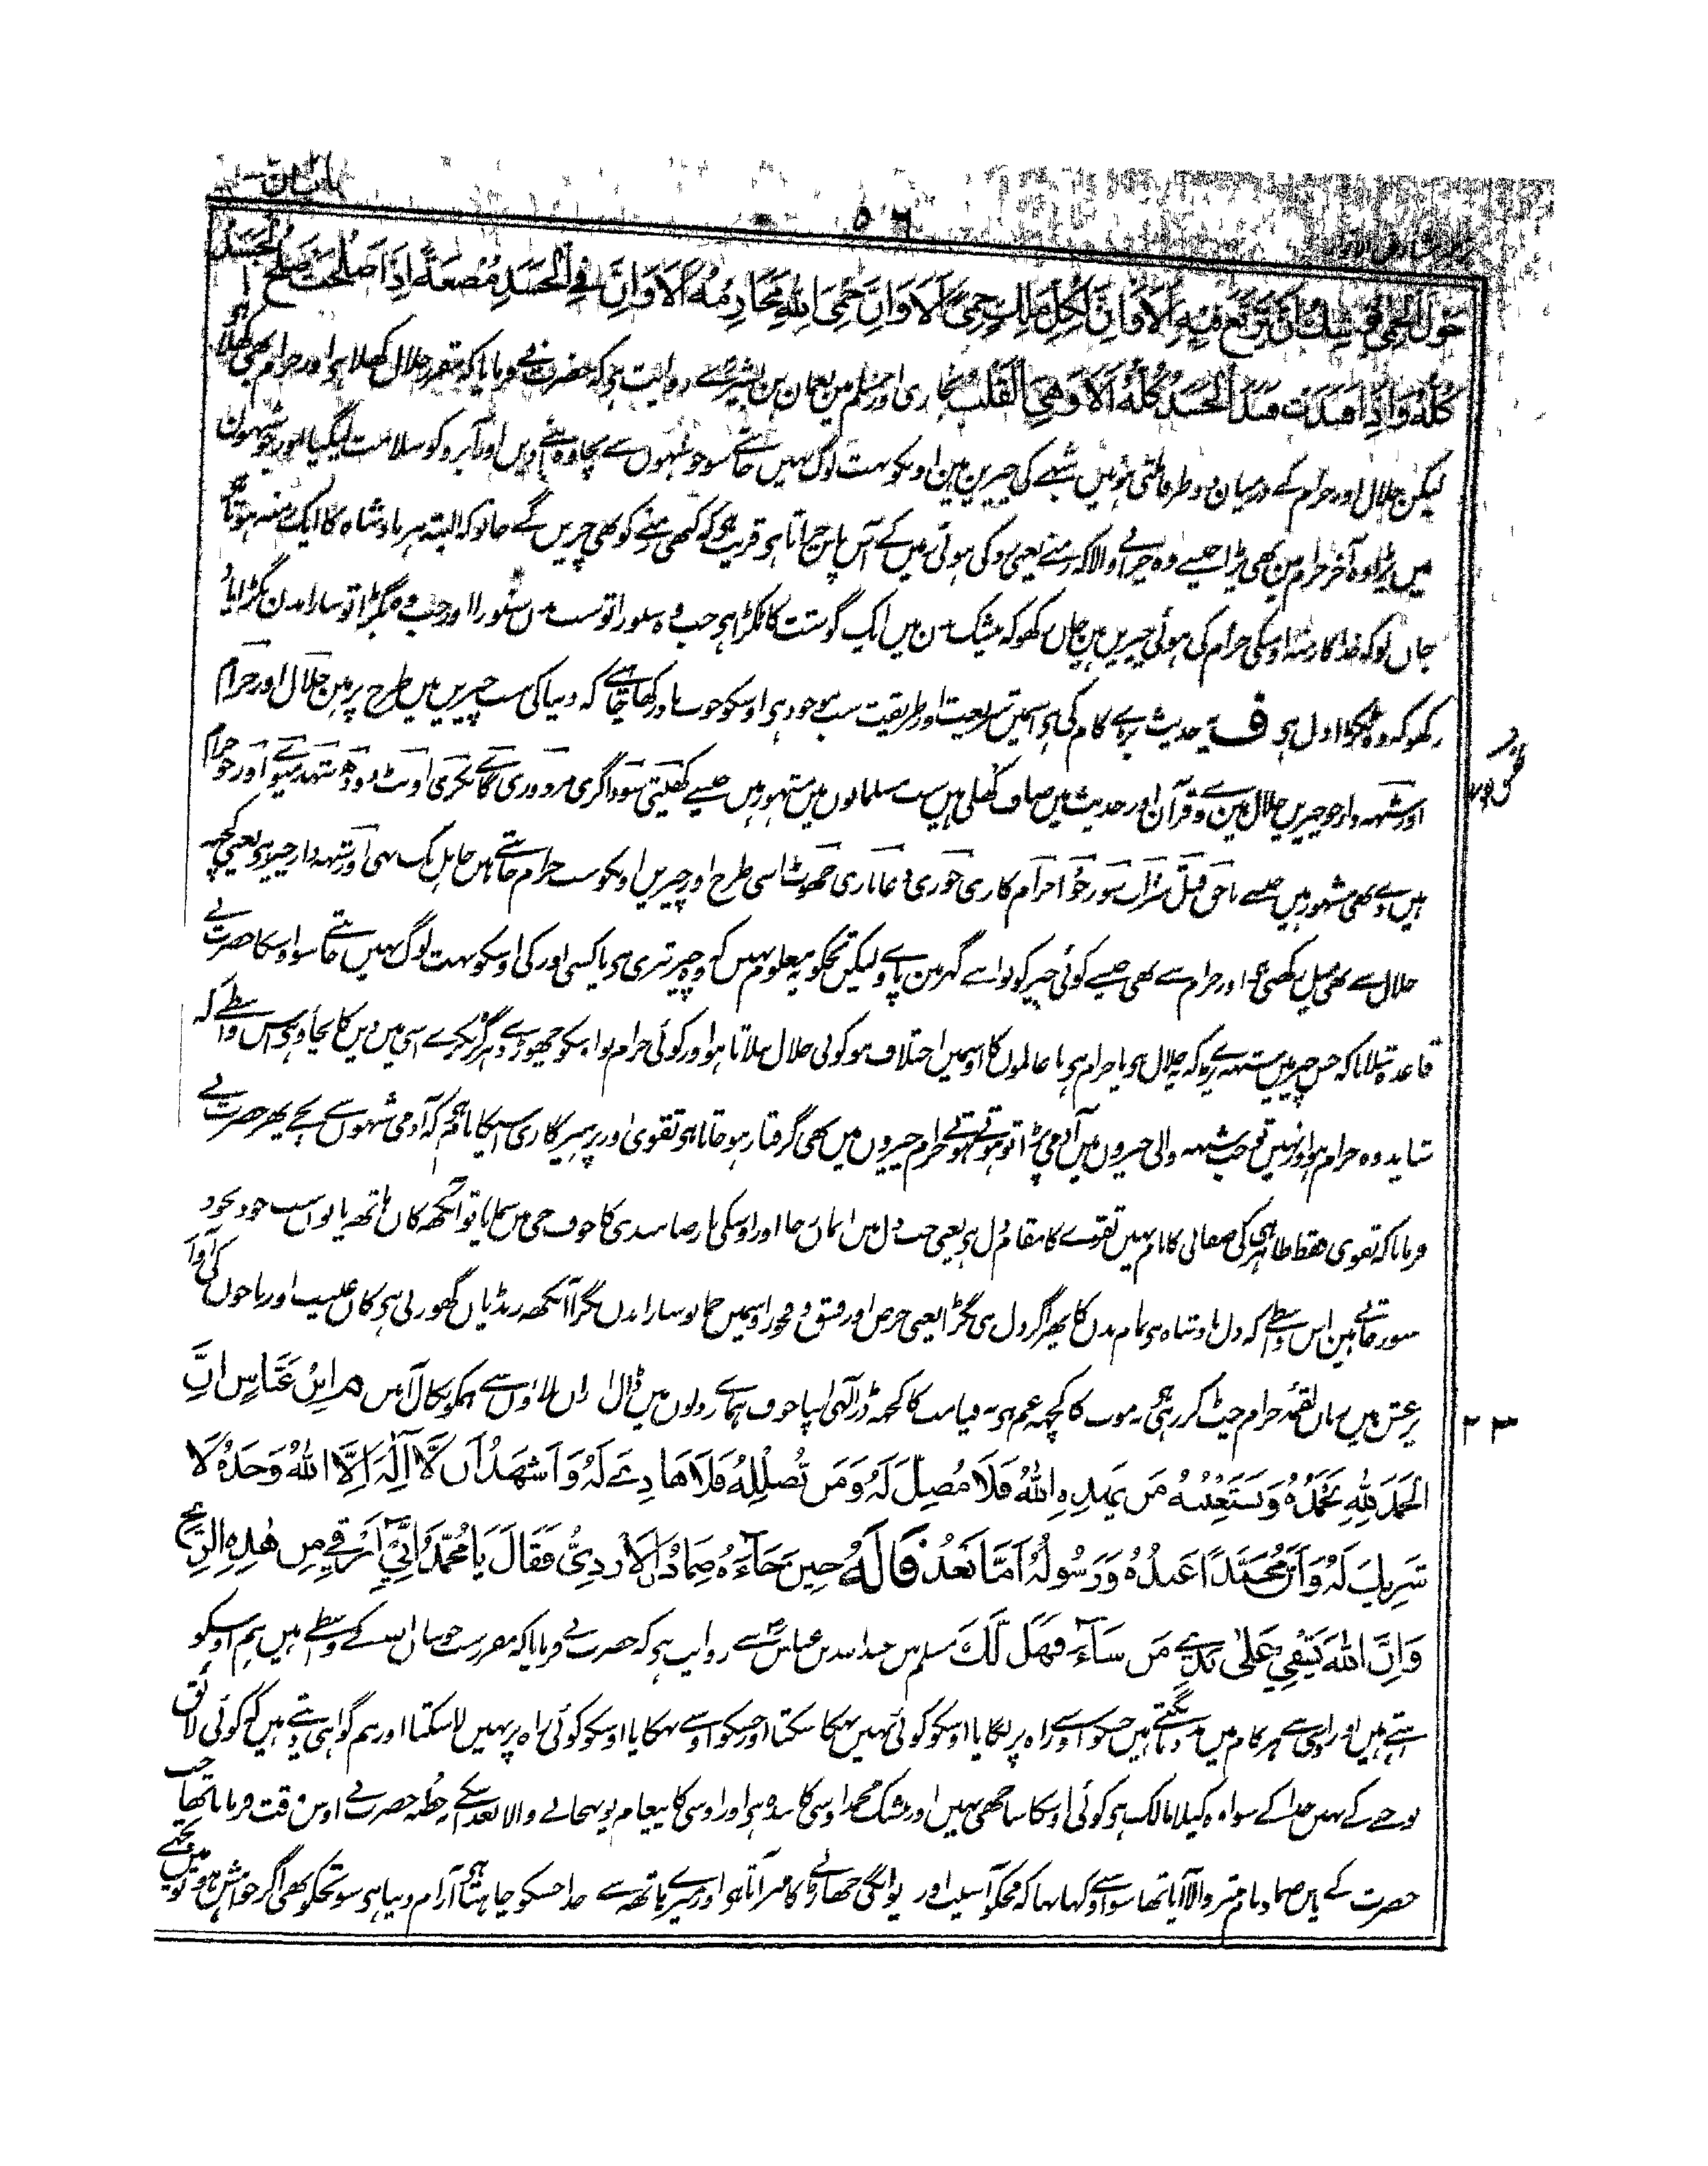 باب ان
۵۶
حَوْلَ الْحِمٰى يُوْشِكُ اَنْ يَّرْتَعَ فِيْهِ اَلَا وَاِنَّ لِكُلِّ مَلِكٍ حِمًى اَلَا وَاِنَّ حِمَى اللّٰهِ مَحَارِمُهٗ اَلَا وَاِنَّ فِى الْجَسَدِ مُضْغَةً اِذَا صَلُحَتْ صَلُحَ الْجَسَدُ
كُلُّهٗ وَاِذَا فَسَدَتْ فَسَدَ الْجَسَدُ كُلُّهٗ اَلَا وَهِىَ الْقَلْبُ بخاری اور مسلم مین نعمان بن بشیرؓ سے روایت ہی کہ حضرت نے فرمایا کہ مقرر حلال کھلا ہی اور حرام بھی کھلا ہی
لیکن حلال اور حرام کے درمیان دو طرف ملتی ہوئیں شبہے کی چیزین ہین اونکو بہت لوگ نہین جانتے سو جو شبہوں سے بچا وہ اپنے دین اور آبرو کو سلامت لیگیا اور جو شبہون
میں پڑا وہ آخر حرام مین بھی پڑا جیسے وہ چرانے والا کہ رمنے یعنی روکی ہوئی زمیں کے آس پاس چراتا ہی قریب ہی کہ کبھی رمنے کو بھی چریں گے جانو کہ البتہ ہر بادشاہ کا ایک رمنہ ہوتا ہی
جاں لو کہ خدا کا رمنہ اوسکی حرام کی ہوئی چیزیں ہین جاں رکھو کہ بیشک بدن میں ایک گوشت کا ٹکڑا ہی جب وہ سنورا تو سب بدن سنورا اور جب وہ بگڑا تو سارا بدن بگڑا یاد
رکھو کہ وہ ٹکڑا دل ہی ف یہ حدیث بڑے کام کی ہی اسمیں شریعت اور طریقت سب موجود ہی اوسکو خوب یاد رکھا چاہئے کہ دنیا کی سب چیزیں تین طرح پر ہین حلال اور حرام
اور شبہہ دار جو چیزیں حلال ہین وے قرآن اور حدیث میں صاف کھلی ہیں سب مسلمانوں میں مشہور ہیں جیسے کھیتی سوداگری مزدوری گائے بکری اونٹ دودھ شہد میوے اور جو حرام
ہیں وے بھی مشہور ہیں جیسے ناحق قتل شراب سور جوا حرام کاری چوری دغا بازی جھوٹ اسی طرح اور چیزیں اونکو سب حرام جانتے ہیں جاہل تک بھی اور شبہہ دار چیز وہ ہی یعنی کچھ
حلال سے بھی میل رکھتی ہی اور حرام سے بھی جیسے کوئی چیز کو تو اپنے گھر مین پاوے لیکن تجکو یہ معلوم نہیں کہ وہ چیز تیری ہی یا کسی اور کی اوسکو بہت لوگ نہیں جانتے سو اوسکا حضرت نے
قاعدہ بتلایا کہ جس چیز میں شبہہ پڑے کہ یہ حلال ہی یا حرام ہی یا عالموں کا اوسمیں اختلاف ہو کوئی حلال بتلاتا ہو اور کوئی حرام تو اوسکو چھوڑ دے ہرگز نکرے اسی میں دیں کا بچاؤ ہی اس واسطے کہ
شاید وہ حرام ہو اور نہیں تو جب شبہہ والی چیزوں میں آدمی پڑا تو ہوتے ہوتے حرام چیزوں میں بھی گرفتار ہو جاتا ہی تقوی اور پرہیزگاری اسیکا نام ہی کہ آدمی شبہوں سے بچے پھر حضرت نے
فرمایا کہ تقوی فقط ظاہر ہی کی صفائی کا نام نہیں تقوے کا مقام دل ہی یعنی جب دل میں ایمان جما اور اوسکی نارضامندی کا خوف جی میں سمایا تو آنکھ کاں ہاتھ پانوں سب خود بخود
سور جاتے ہین اس واسطے کہ دل بادشاہ ہی تمام بدن کا پھر اگر دل ہی بگڑا یعنی حرص اور فسق و فجور اوسمیں جما تو سارا بدں بگڑا آنکھ رنڈیاں گھورتی ہی کاں غیبت اور باجوں کی آواز
پر غش ہیں زباں لقمۂ حرام چٹ کر رہی ہی نہ موت کا کچھ غم ہی نہ قیامت کا کچھ ڈر الٰہی اپنا خوف ہمارے دلوں میں ڈال اں بلاؤں سے ہمکو نکال آمیں م ابن عَبَّاسٍ اِنَّ
الْحَمْدَ لِلّٰهِ نَحْمَدُهٗ وَنَسْتَعِيْنُهٗ مَنْ يَّهْدِهِ اللّٰهُ فَلَا مُضِلَّ لَهٗ وَمَنْ يُّضْلِلْهُ فَلَا هَادِىَ لَهٗ وَاَشْهَدُ اَنْ لَّا اِلٰهَ اِلَّا اللّٰهُ وَحْدَهٗ لَا
شَرِيْكَ لَهٗ وَاَنَّ مُحَمَّدًا عَبْدُهٗ وَرَسُوْلُهٗ اَمَّا بَعْدُ قَالَهٗ حِيْنَ جَآءَهٗ ضِمَادُ الْاَزْدِىُّ فَقَالَ يَا مُحَمَّدُ اِنِّىْ اَرْقِىْ مِنْ هٰذِهِ الرِّيْحِ
وَاِنَّ اللّٰهَ يَشْفِىْ عَلٰى يَدِىْ مَنْ شَآءَ فَهَلْ لَّكَ مسلم میں عبداللہ بن عباسؓ سے روایت ہی کہ حضرت نے فرمایا کہ مقرر سب خوبیاں اللہ کے واسطے ہیں ہم اوسکو
سراہتے ہیں اور اوسی سے ہر کام میں مدد مانگتے ہیں جسکو اوسنے راہ پر لگایا اوسکو کوئی نہیں بہکا سکتا اور جسکو اوسنے بہکایا اوسکو کوئی راہ پر نہیں لا سکتا اور ہم گواہی دیتے ہیں کہ کوئی لائق
پوجنے کے نہیں خدا کے سوا وہ اکیلا مالک ہی کوئی اوسکا ساجھی نہیں اور بیشک محمد اوسی کا بندہ ہی اور اوسی کا پیغام پہونچانے والا بعد اسکے یہ خطبہ حضرت نے اوس وقت فرمایا تھا جب
حضرت کے پاس ضماد نام منتر والا آیا تھا سو اوسنے کہا تھا کہ مجکو آسیب اور دیوانگی جھاڑنے کا منتر آتا ہی اور میرے ہاتھ سے خدا جسکو چاہتا ہی آرام دیتا ہی سو تجکو بھی اگر خواہش ہو تو میں تجھے
۲۳